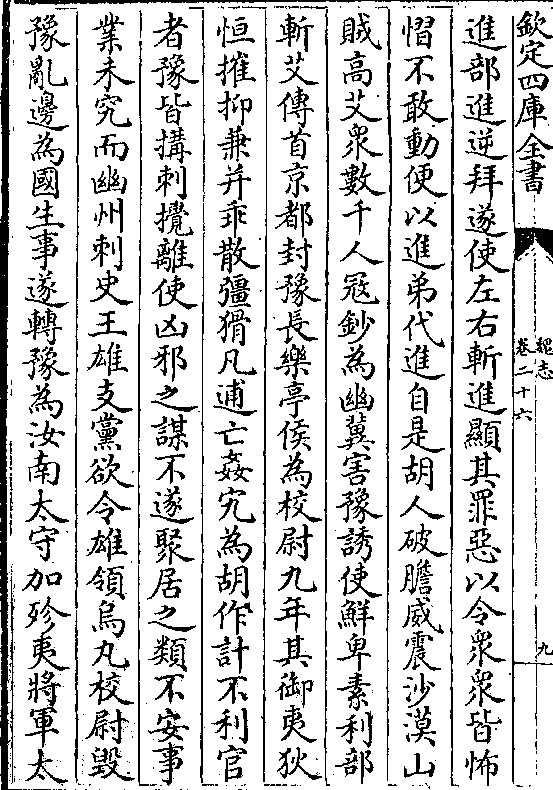 欽定四庫全書
魏志
卷二十六
九
進部進逆拜遂使左右斬進顯其罪惡以令衆衆皆怖
慴不敢動便以進弟代進自是胡人破膽威震沙漠山
賊高艾衆數千人冦鈔為幽冀害豫誘使鮮卑素利部
斬艾傳首京都封豫長樂亭侯為校尉九年其御夷狄
恒摧抑兼并乖散彊猾凡逋亡姦宄為胡作計不利官
者豫皆搆刺攪離使凶邪之謀不遂聚居之類不安事
業未究而幽州刺史王雄支黨欲令雄領烏丸校尉毀
豫亂邊為國生事遂轉豫為汝南太守加殄夷將軍太